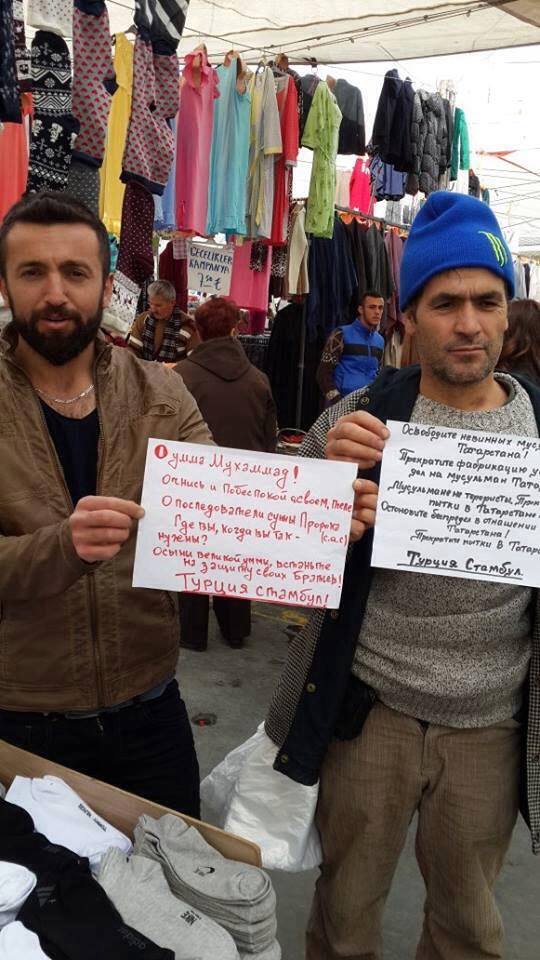 GECELİKLER
KAMPANYA
7.50 ₺
О умма Мухаммад!
Очнись и Побеспокой
О последователи сунны Пророка
Где вы, когда вы так- (с.а.с)
нужены?
О сыны великой уммы, встаньте
на защиту своих Братьев!
ТУРЦИЯ СТАМБУЛ!
Освободите невинных мус
Татарстана!
Прекратите фабрикацию уг
дел на мусульман Тата
Мусульмане не террористы, Прек
пытки в Татарстане
Остановите беспредел в отношении
Татарстана!
Прекратите пытки в Татар
Турция Стамбул.
NIKE
adidas